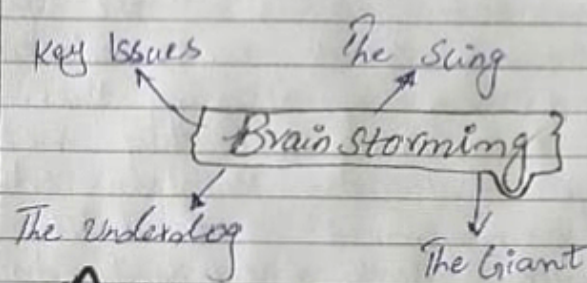 Key Issues
The Sling
Brain Storming
The Underdog
The Giant